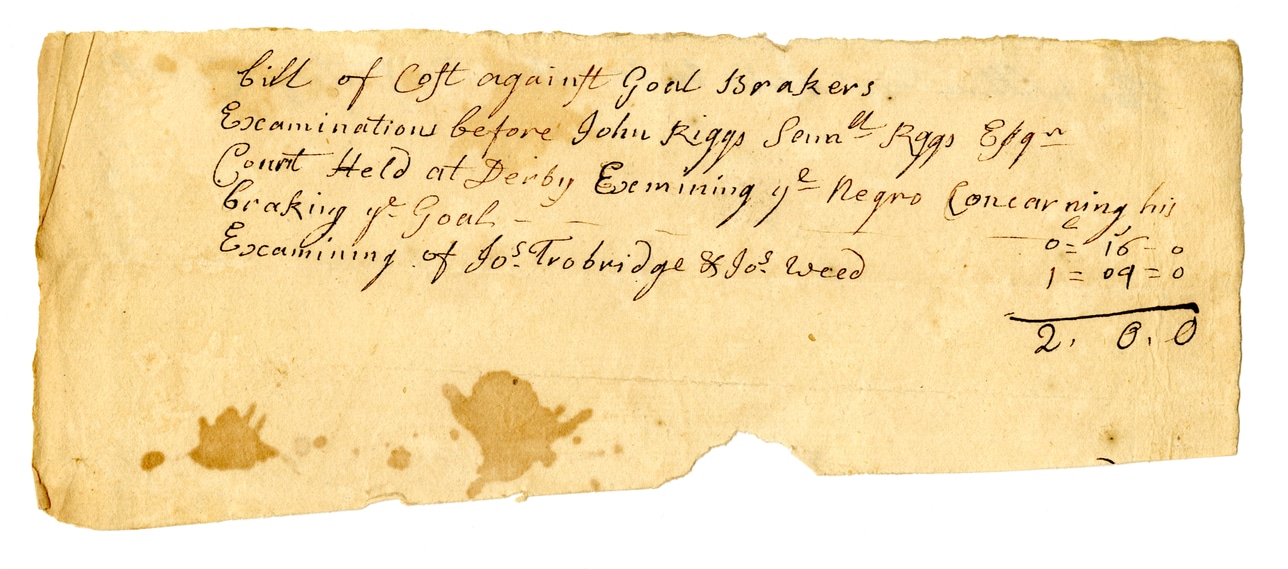 bill of Cost against Goal Brakers
Examinations before John Riggs Samll Rggs Esqrs
Court Held at Derby Exemining ye Negro Concarning his
braking ye Goal
0 = 16 - 0
Examining of Jos Trobridge & Jos Weed
1 = 09 = 0
2. 0. 0